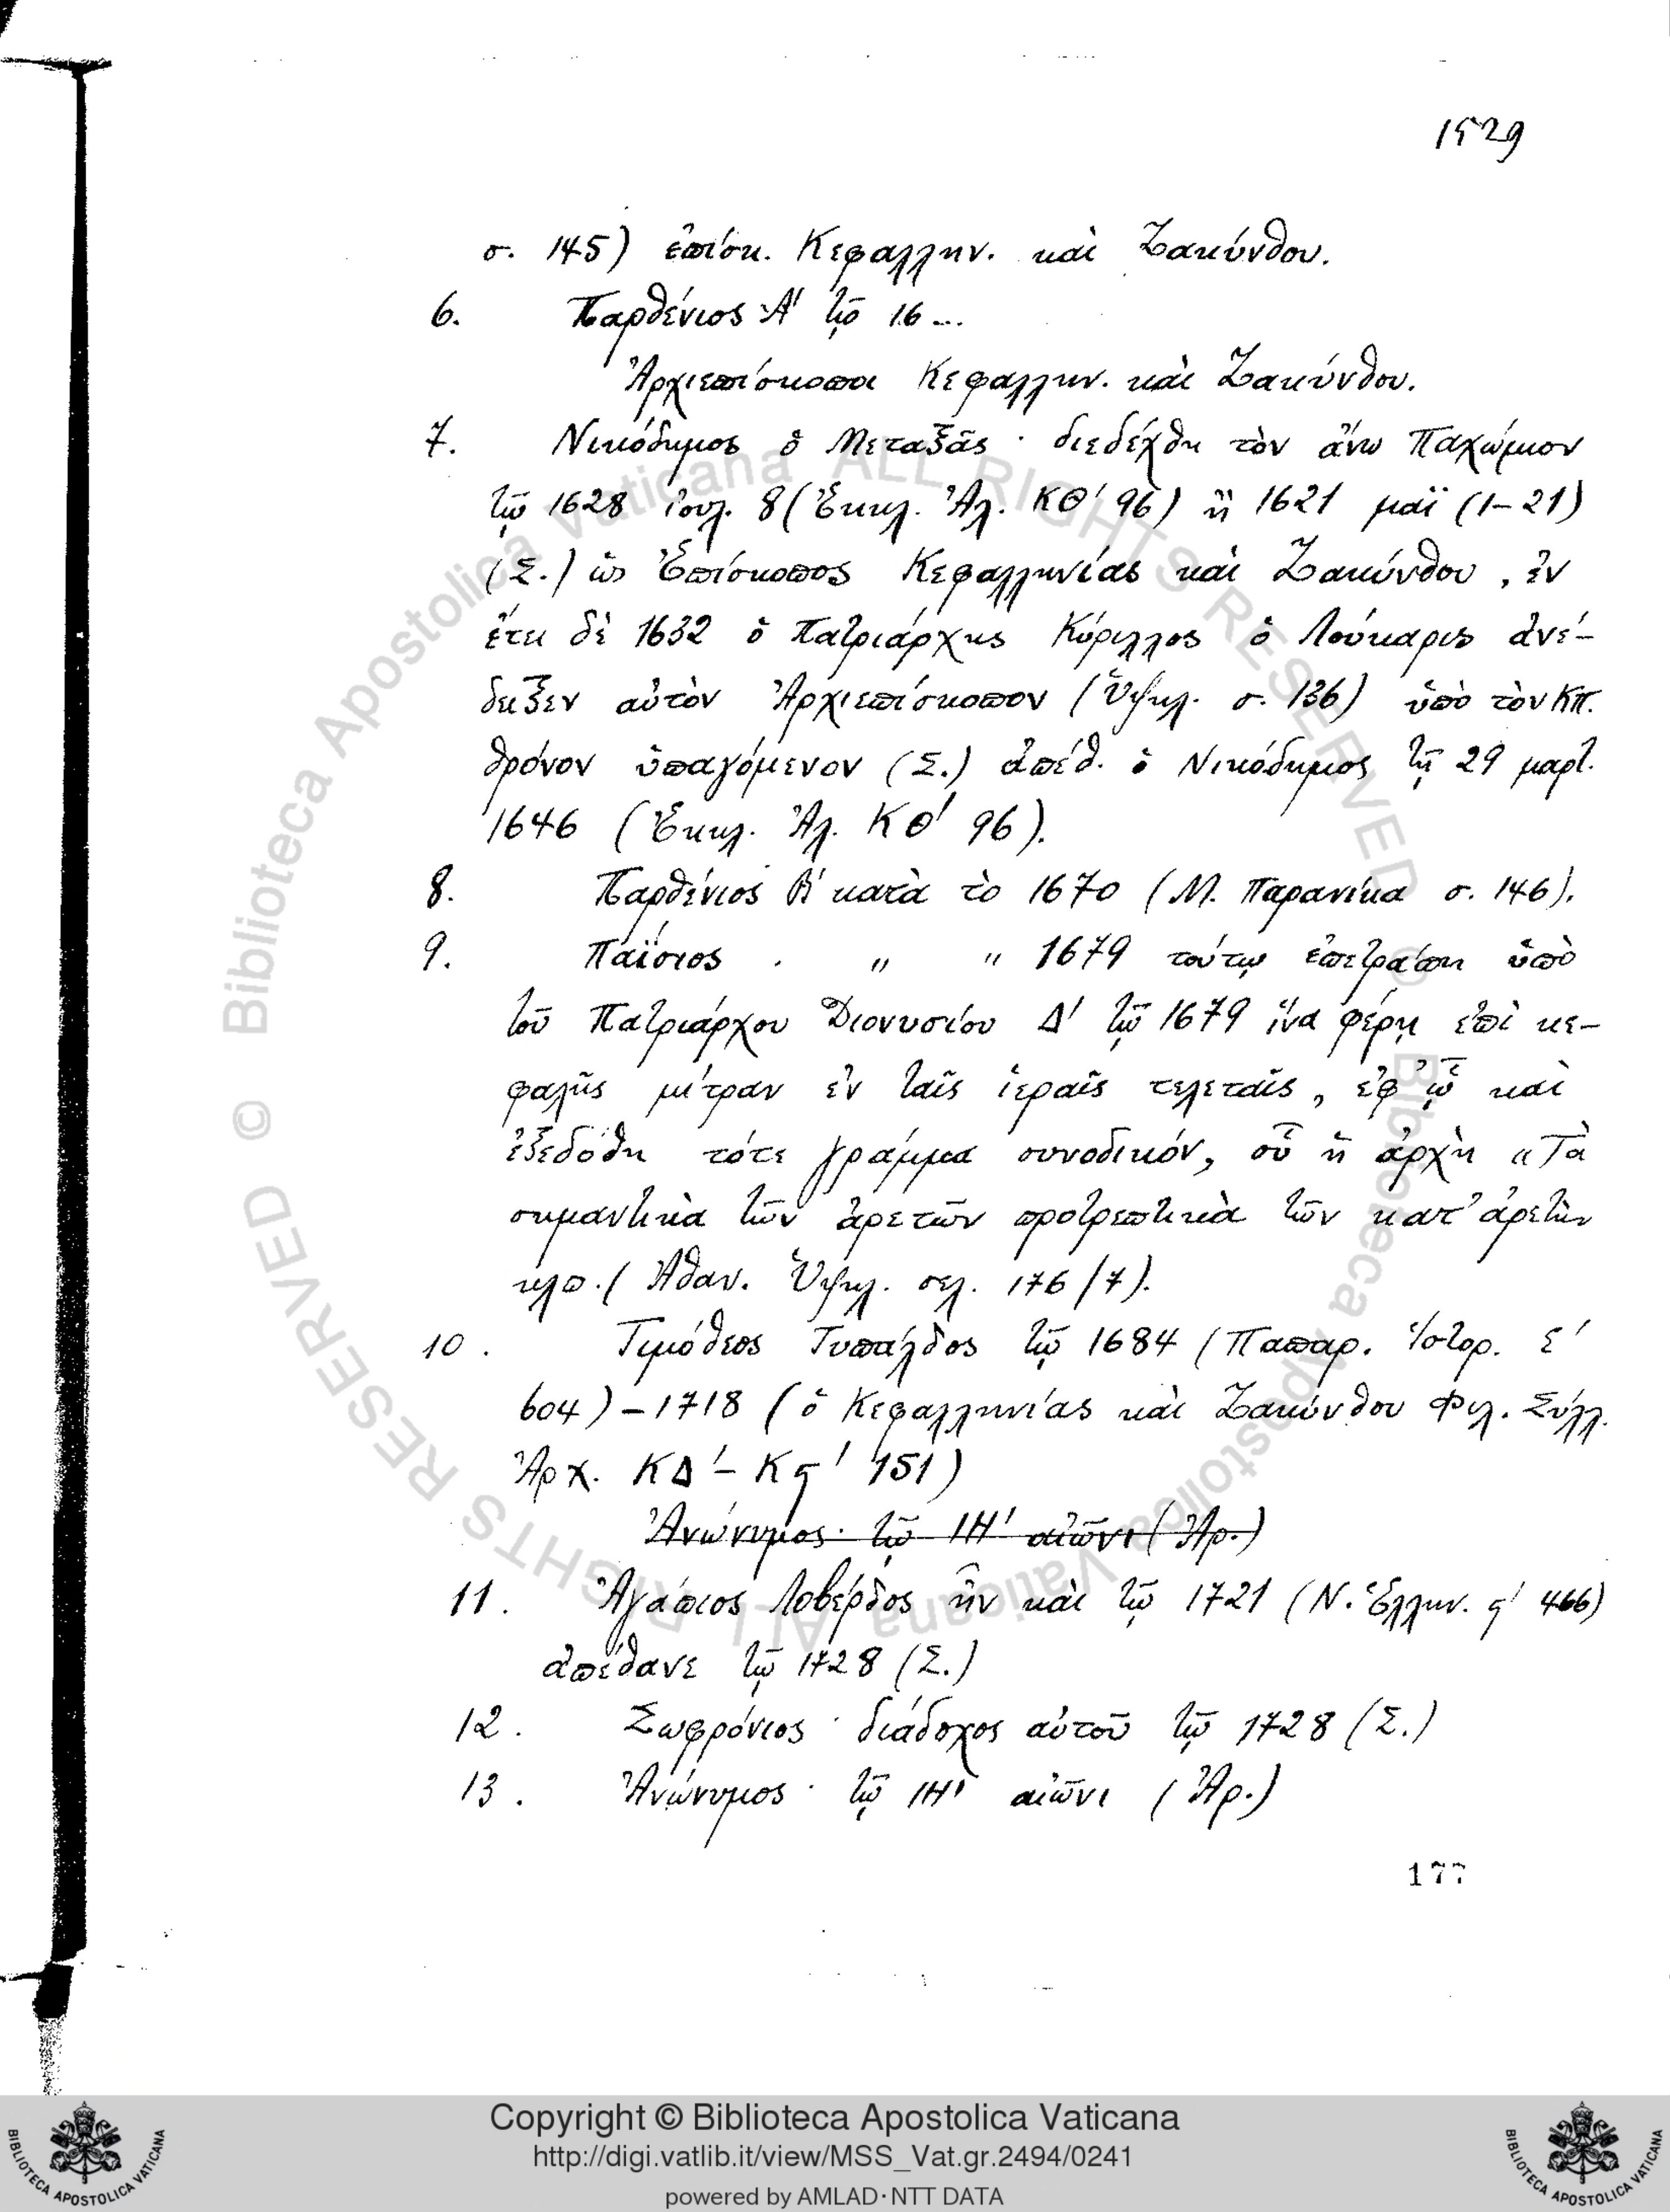 1529
σ. 145) ἐπίσκ. Κεφαλλην. καὶ Ζακύνθου.
6. Παρθένιος Α' τῷ 16...
Ἀρχιεπίσκοποι Κεφαλλην. καὶ Ζακύνθου.
7. Νικόδημος ὁ Μεταξᾶς · διεδέχθη τὸν ἄνω Παχώμιον
τῷ 1628 ἰουλ. 8 (Ἐκκλ. Ἀλ. ΚΘ' 96) ἢ 1621 μαϊ (1-21)
(Σ.) ὡς Ἐπίσκοπος Κεφαλληνίας καὶ Ζακύνθου, ἐν
ἔτει δὲ 1632 ὁ Πατριάρχης Κύριλλος ὁ Λούκαρις ἀνέ-
δειξεν αὐτὸν Ἀρχιεπίσκοπον (Ὑψηλ. σ. 136) ὑπὸ τὸν Κπ.
θρόνον ὑπαγόμενον (Σ.) ἀπέθ. ὁ Νικόδημος τῇ 29 μαρτ.
1646 (Ἐκκλ. Ἀλ. ΚΘ' 96).
8. Παρθένιος Β' κατὰ τὸ 1670 (Μ. Παρανίκα σ. 146).
9. Παΐσιος · " " 1679 τούτῳ ἐπετράπη ὑπὸ
τοῦ Πατριάρχου Διονυσίου Δ' τῷ 1679 ἵνα φέρῃ ἐπὶ κε-
φαλῆς μίτραν ἐν ταῖς ἱεραῖς τελεταῖς, ἐφ' ᾧ καὶ
ἐξεδόθη τότε γράμμα συνοδικόν, οὗ ἡ ἀρχὴ «Τὰ
σημαντικὰ τῶν ἀρετῶν προτρεπτικὰ τῶν κατ' ἀρετὴν
κλπ. (Ἀθαν. Ὑψηλ. σελ. 176/7).
10. Τιμόθεος Τυπάλδος τῷ 1684 (Παπαρ. Ἱστορ. Ε'
604) - 1718 (ὁ Κεφαλληνίας καὶ Ζακύνθου Φιλ. Σύλλ.
Ἀρχ. ΚΔ' - Κϛ' 151)
Ἀνώνυμος · τῷ ΙΗ' αἰῶνι (Ἀρ.)
11. Ἀγάπιος Λοβέρδος ἦν καὶ τῷ 1721 (Ν. Ἑλλην. ϛ' 466)
ἀπέθανε τῷ 1728 (Σ.)
12. Σωφρόνιος · διάδοχος αὐτοῦ τῷ 1728 (Σ.)
13. Ἀνώνυμος · τῷ ΙΗ' αἰῶνι (Ἀρ.)
177
© Biblioteca Apostolica Vaticana ALL RIGHTS RESERVED © Biblioteca Apostolica Vaticana ALL RIGHTS RESERVED
Copyright © Biblioteca Apostolica Vaticana
http://digi.vatlib.it/view/MSS_Vat.gr.2494/0241
powered by AMLAD·NTT DATA
BIBLIOTECA APOSTOLICA VATICANA
BIBLIOTECA APOSTOLICA VATICANA